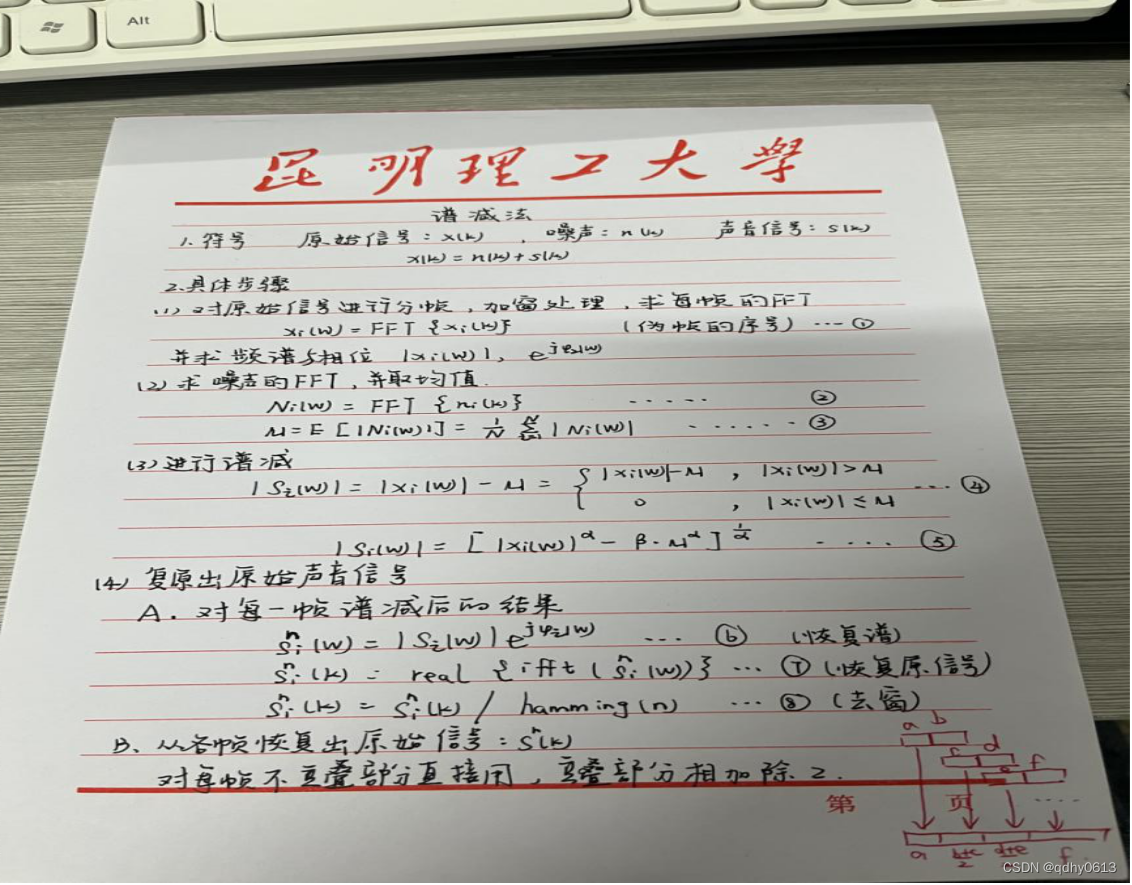 Alt
昆明理工大学
谱减法
1.符号 原始信号:x(k) ,噪声:n(k) 声音信号:s(k)
x(k)=n(k)+s(k)
2.具体步骤
(1)对原始信号进行分帧,加窗处理,求每帧的FFT
xi(w)=FFT{xi(k)} (i为帧的序号) ···①
并求频谱与相位 |xi(w)|, e^{jφi(w)}
(2)求噪声的FFT,并取均值.
Ni(w)=FFT{ni(k)} ····· ②
μ=E[|Ni(w)|]=1/N Σ|Ni(w)| ······③
(3)进行谱减
|Si(w)|=|xi(w)|-μ={|xi(w)|-μ , |xi(w)|>μ
0 , |xi(w)|≤μ ···④
|Si(w)|=[|xi(w)|^α-β·μ^α]^{1/α} ···· ⑤
(4)复原出原始声音信号
A.对每一帧谱减后的结果
ŝi(w)=|Si(w)|e^{jφi(w)} ··· ⑥ (恢复谱)
ŝi(k)=real{ifft(ŝi(w))} ··· ⑦ (恢复原信号)
ŝi(k)=ŝi(k)/hamming(n) ··· ⑧ (去窗)
B.从各帧恢复出原始信号:ŝ(k)
对每帧不重叠部分直接用,重叠部分相加除2.
a b
c d
e f
第 页
····
a b+c/2 d+e f
CSDN @qdhy0613